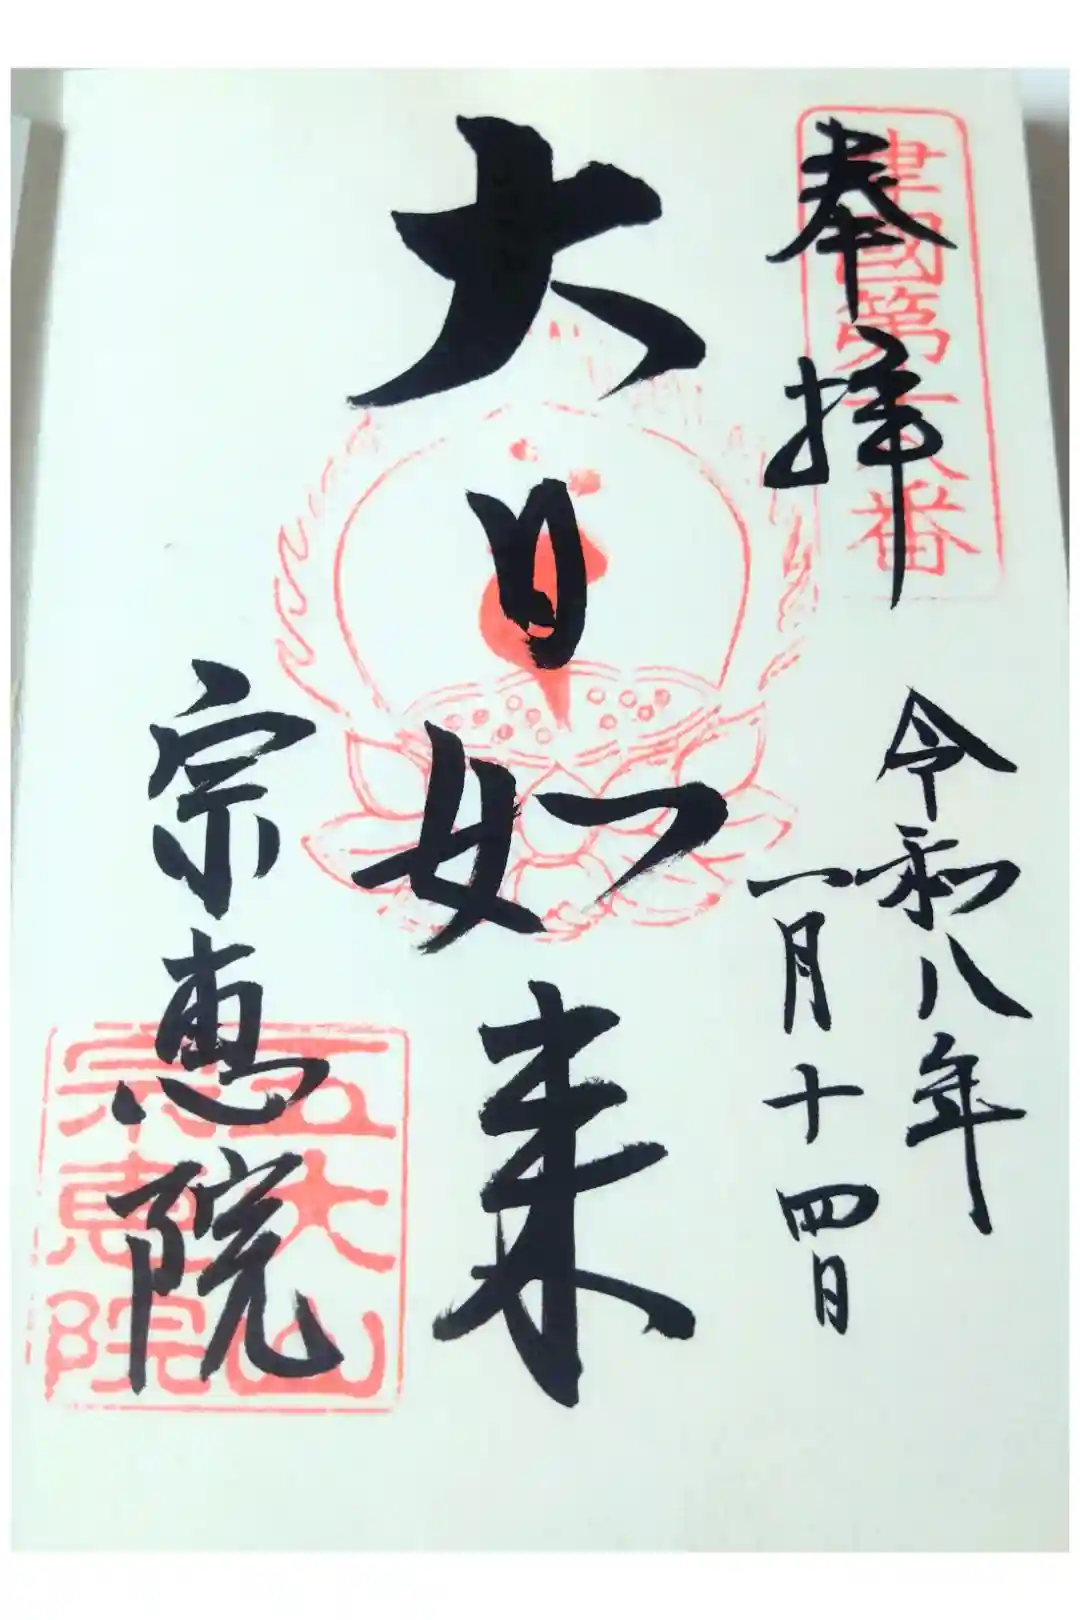 奉拝
國第 番
令和八年
一月十四日
大日如来
宗恵院
五大山
宗恵院